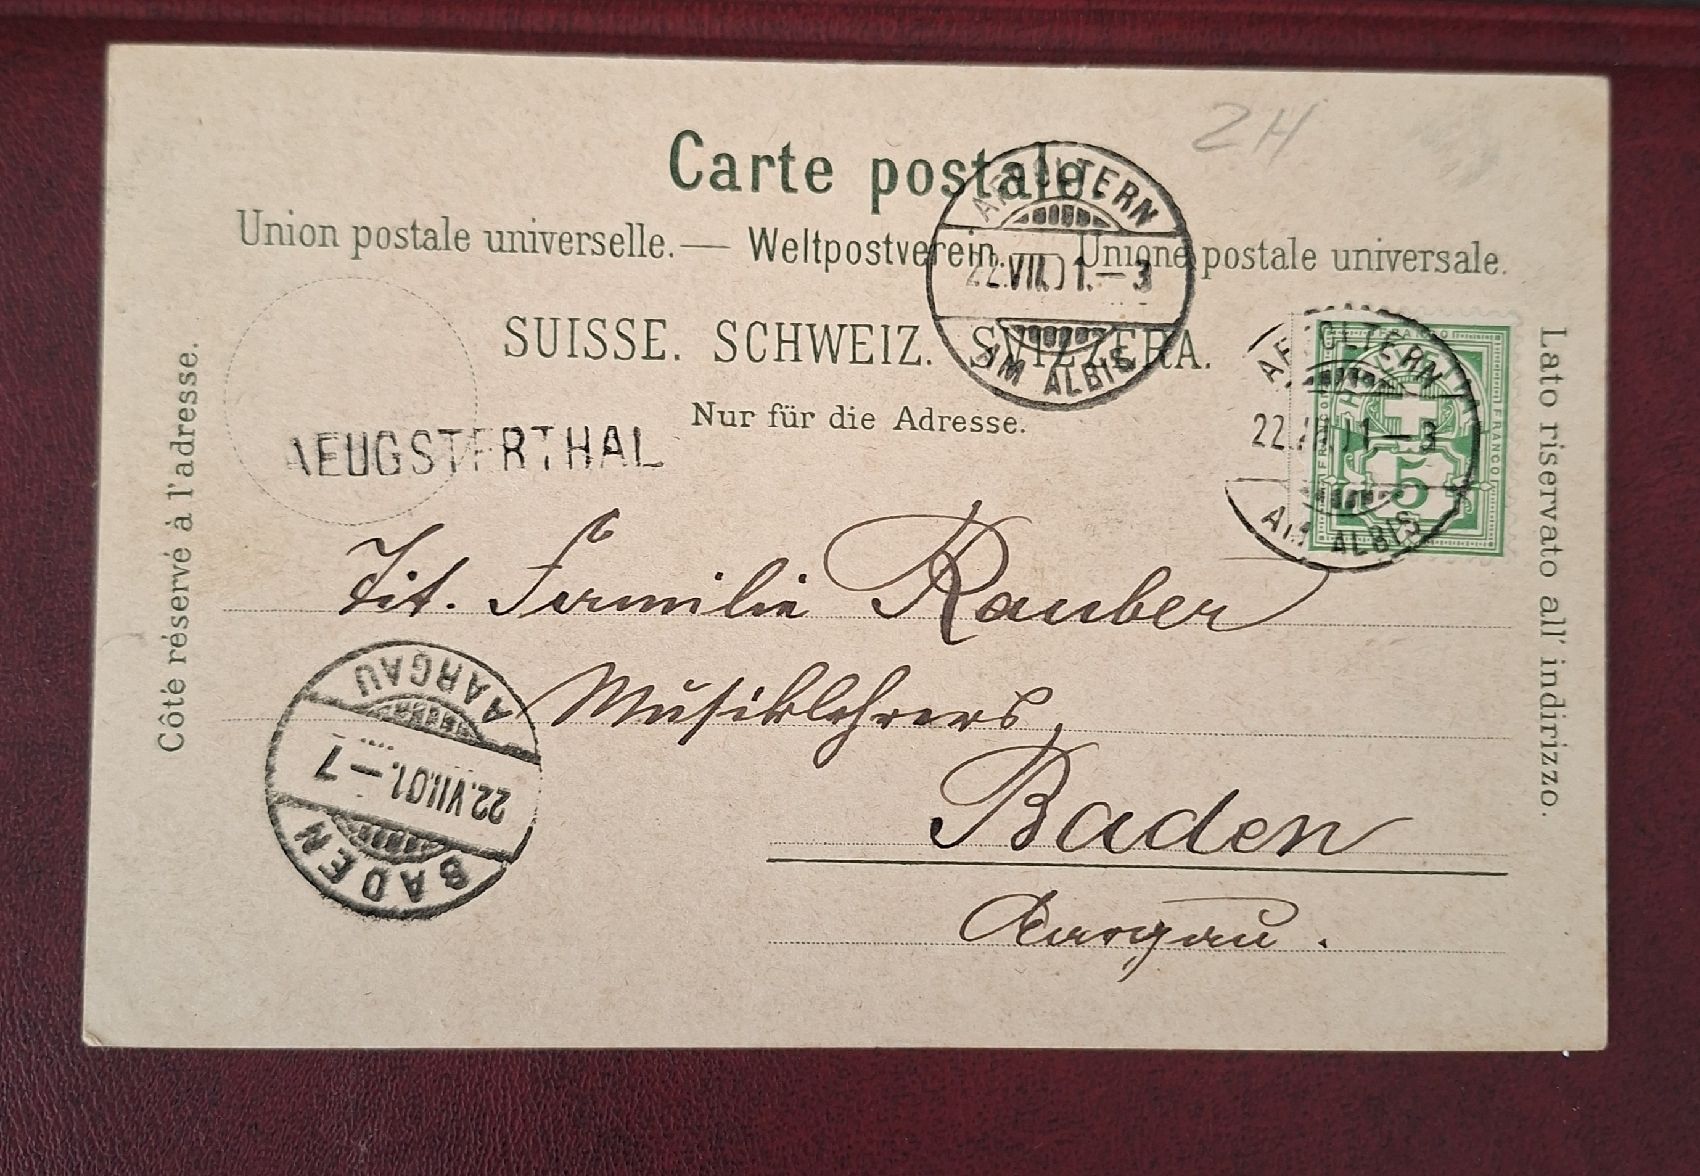 ZH
Carte postale.
Union postale universelle. — Weltpostverein. — Unione postale universale.
SUISSE. SCHWEIZ. SVIZZERA.
Nur für die Adresse.
AEUGSTERTHAL
AFFOLTERN
22.VII.01.—3
AM ALBIS
AFFOLTERN
22.VII.01—3
AM ALBIS
FRANCO
HELVETIA
FRANCO
FRANCO
5
Côté réservé à l'adresse.
Lato riservato all' indirizzo.
Tit. Familie Rauber
Musiklehrers,
Baden
Aargau.
BADEN
22.VII.01.—7
AARGAU